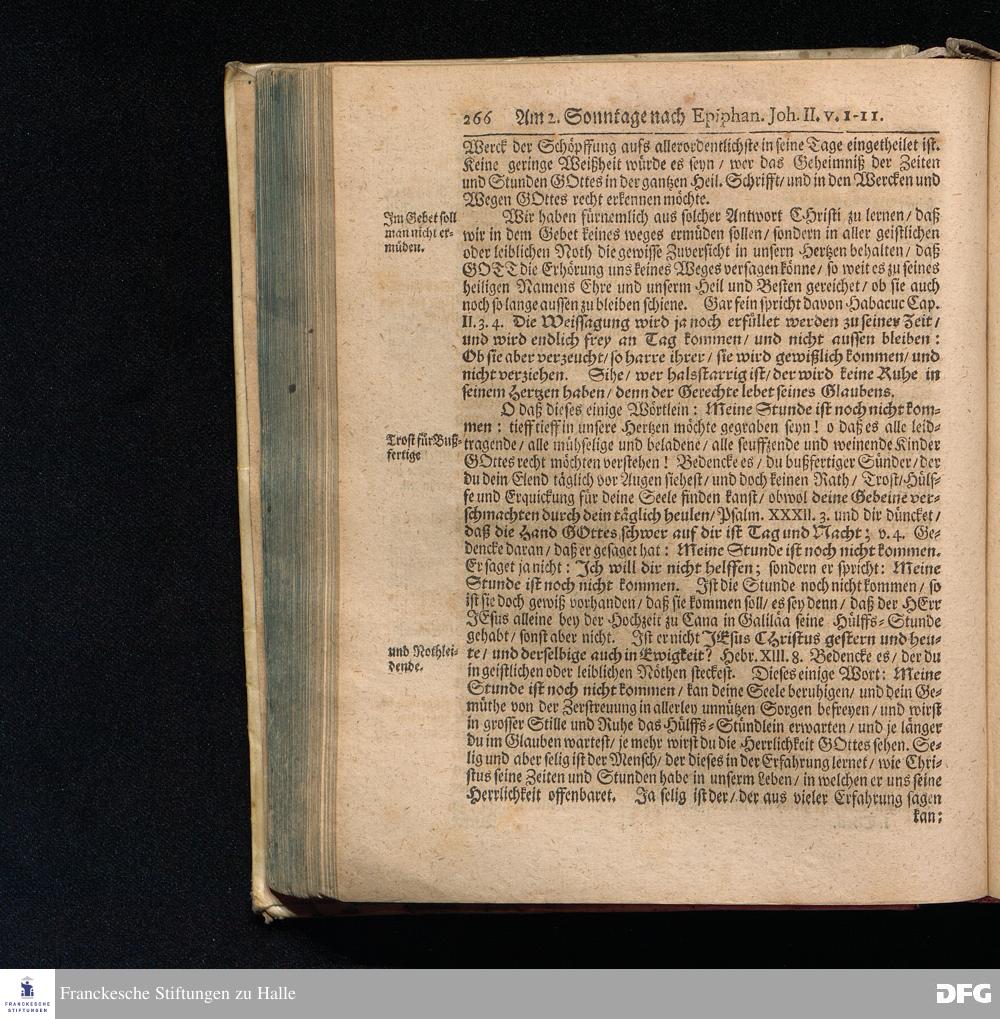 266 Am 2. Sonntage nach Epiphan. Joh. II. v. 1-11.
Werck der Schöpffung aufs allerordentlichste in seine Tage eingetheilet ist.
Keine geringe Weißheit würde es seyn / wer das Geheimniß der Zeiten
und Stunden GOttes in der gantzen Heil. Schrifft / und in den Wercken und
Wegen GOttes recht erkennen möchte.
Im Gebet soll
man nicht er-
müden.
Wir haben fürnemlich aus solcher Antwort CHristi zu lernen / daß
wir in dem Gebet keines weges ermüden sollen / sondern in aller geistlichen
oder leiblichen Noth die gewisse Zuversicht in unsern Hertzen behalten / daß
GOTT die Erhörung uns keines Weges versagen könne / so weit es zu seines
heiligen Namens Ehre und unserm Heil und Besten gereichet / ob sie auch
noch so lange aussen zu bleiben schiene. Gar fein spricht davon Habacuc Cap.
II. 3. 4. Die Weissagung wird ja noch erfüllet werden zu seiner Zeit /
und wird endlich frey an Tag kommen / und nicht aussen bleiben :
Ob sie aber verzeucht / so harre ihrer / sie wird gewißlich kommen / und
nicht verziehen. Sihe / wer halsstarrig ist / der wird keine Ruhe in
seinem Hertzen haben / denn der Gerechte lebet seines Glaubens.
O daß dieses einige Wörtlein : Meine Stunde ist noch nicht kom-
men : tieff tieff in unsere Hertzen möchte gegraben seyn ! o daß es alle leid-
Trost für Buß-
fertige
tragende / alle mühselige und beladene / alle seuffzende und weinende Kinder
GOttes recht möchten verstehen ! Bedencke es / du bußfertiger Sünder / der
du dein Elend täglich vor Augen siehest / und doch keinen Rath / Trost / Hülf-
fe und Erquickung für deine Seele finden kanst / obwol deine Gebeine ver-
schmachten durch dein täglich heulen / Psalm. XXXII. 3. und dir düncket /
daß die Hand GOttes schwer auf dir ist Tag und Nacht ; v. 4. Ge-
dencke daran / daß er gesaget hat : Meine Stunde ist noch nicht kommen.
Er saget ja nicht : Ich will dir nicht helffen ; sondern er spricht : Meine
Stunde ist noch nicht kommen. Ist die Stunde noch nicht kommen / so
ist sie doch gewiß vorhanden / daß sie kommen soll / es sey denn / daß der HErr
JEsus alleine bey der Hochzeit zu Cana in Galiläa seine Hülffs-Stunde
gehabt / sonst aber nicht. Ist er nicht JEsus CHristus gestern und heu-
und Nothlei-
dende.
te / und derselbige auch in Ewigkeit? Hebr. XIII. 8. Bedencke es / der du
in geistlichen oder leiblichen Nöthen steckest. Dieses einige Wort : Meine
Stunde ist noch nicht kommen / kan deine Seele beruhigen / und dein Ge-
müthe von der Zerstreuung in allerley unnützen Sorgen befreyen / und wirst
in grosser Stille und Ruhe das Hülffs-Stündlein erwarten / und je länger
du im Glauben wartest / je mehr wirst du die Herrlichkeit GOttes sehen. Se-
lig und aber selig ist der Mensch / der dieses in der Erfahrung lernet / wie Chri-
stus seine Zeiten und Stunden habe in unserm Leben / in welchen er uns seine
Herrlichkeit offenbaret. Ja selig ist der / der aus vieler Erfahrung sagen
kan :
FRANCKESCHE
STIFTUNGEN
Franckesche Stiftungen zu Halle
DFG